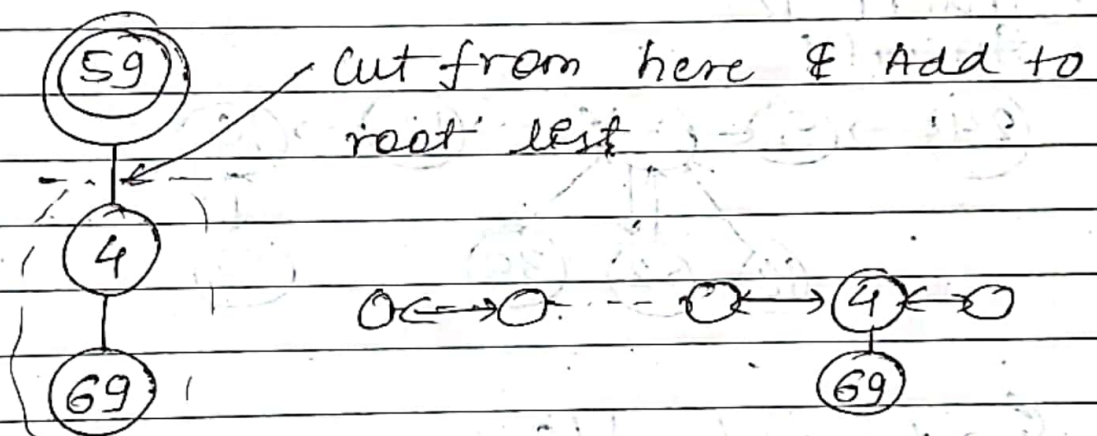 59
cut from here & Add to
root list
4
4
69
69